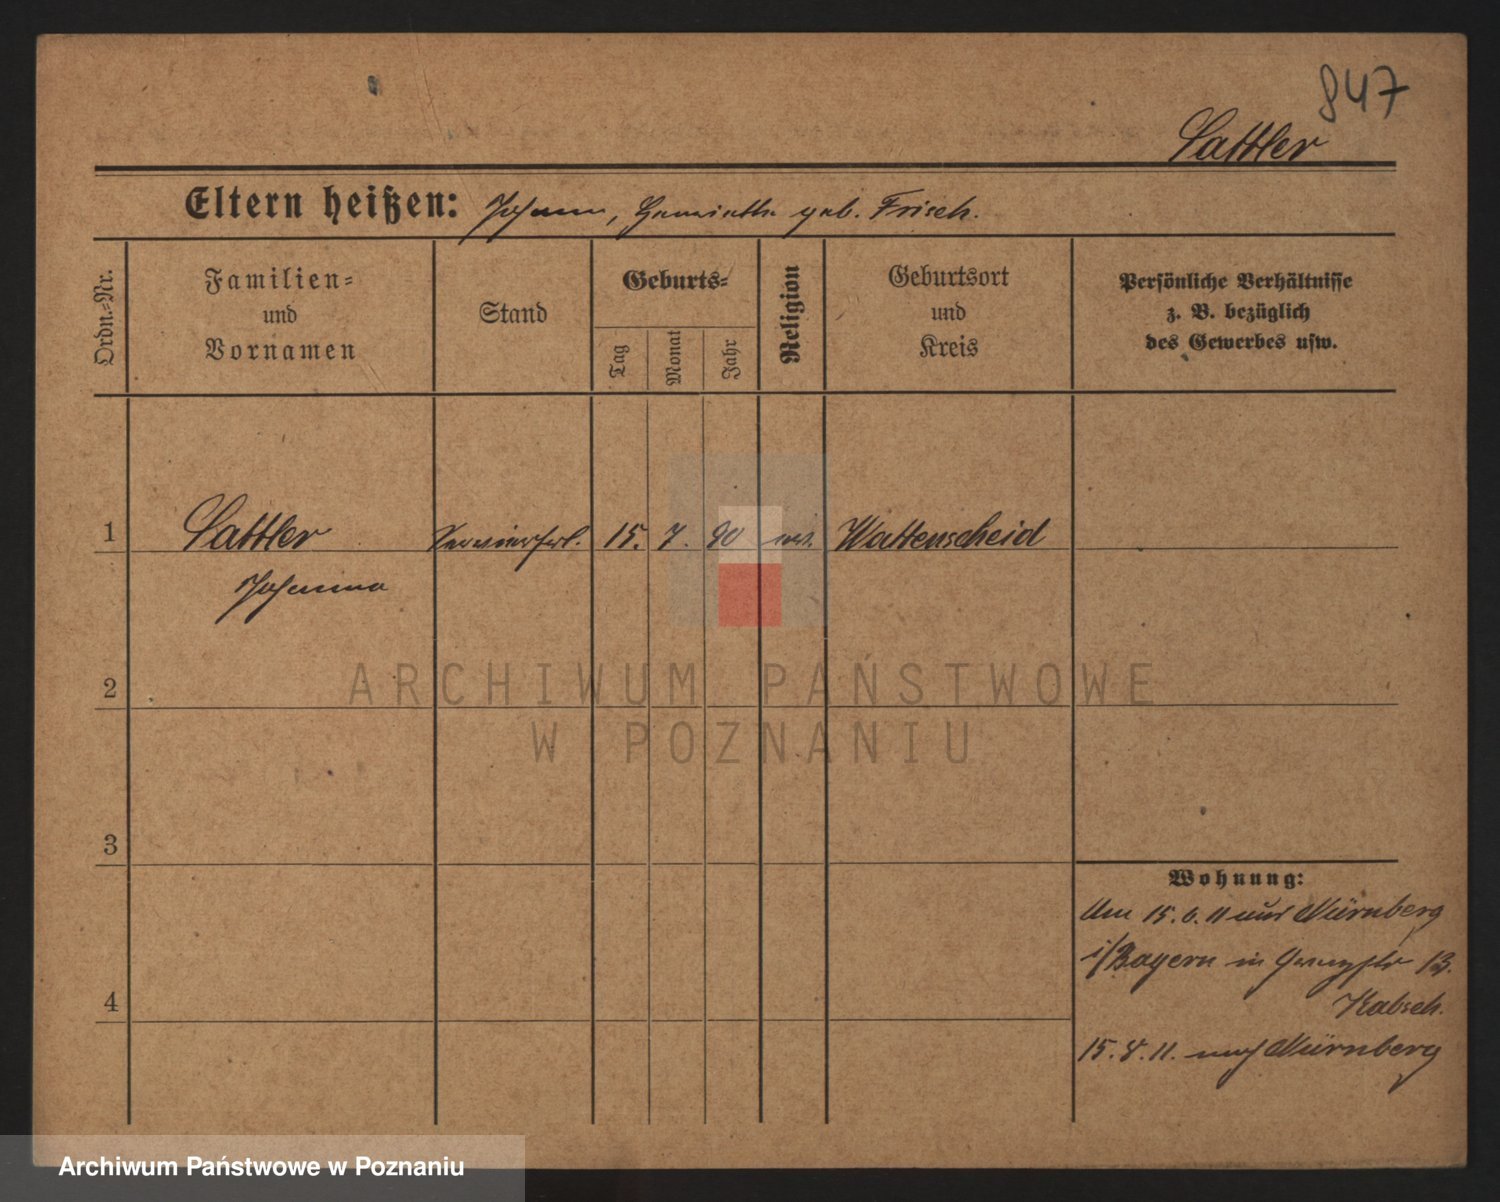 847
Sattler
Eltern heißen: Johann, Henriette geb. Frisch.
Ordn.-Nr.
Familien-
und
Vornamen
Stand
Geburts-
Tag
Monat
Jahr
Religion
Geburtsort
und
Kreis
Persönliche Verhältnisse
z. B. bezüglich
des Gewerbes usw.
1 Sattler 15. 7. 90 Wattenscheid
Johanna
2
3
4
Wohnung:
Am 15.6.11 aus Nürnberg
i/Bayern in 13.
Kabsch.
15.8.11. nach Nürnberg
ARCHIWUM PAŃSTWOWE
W POZNANIU
Archiwum Państwowe w Poznaniu